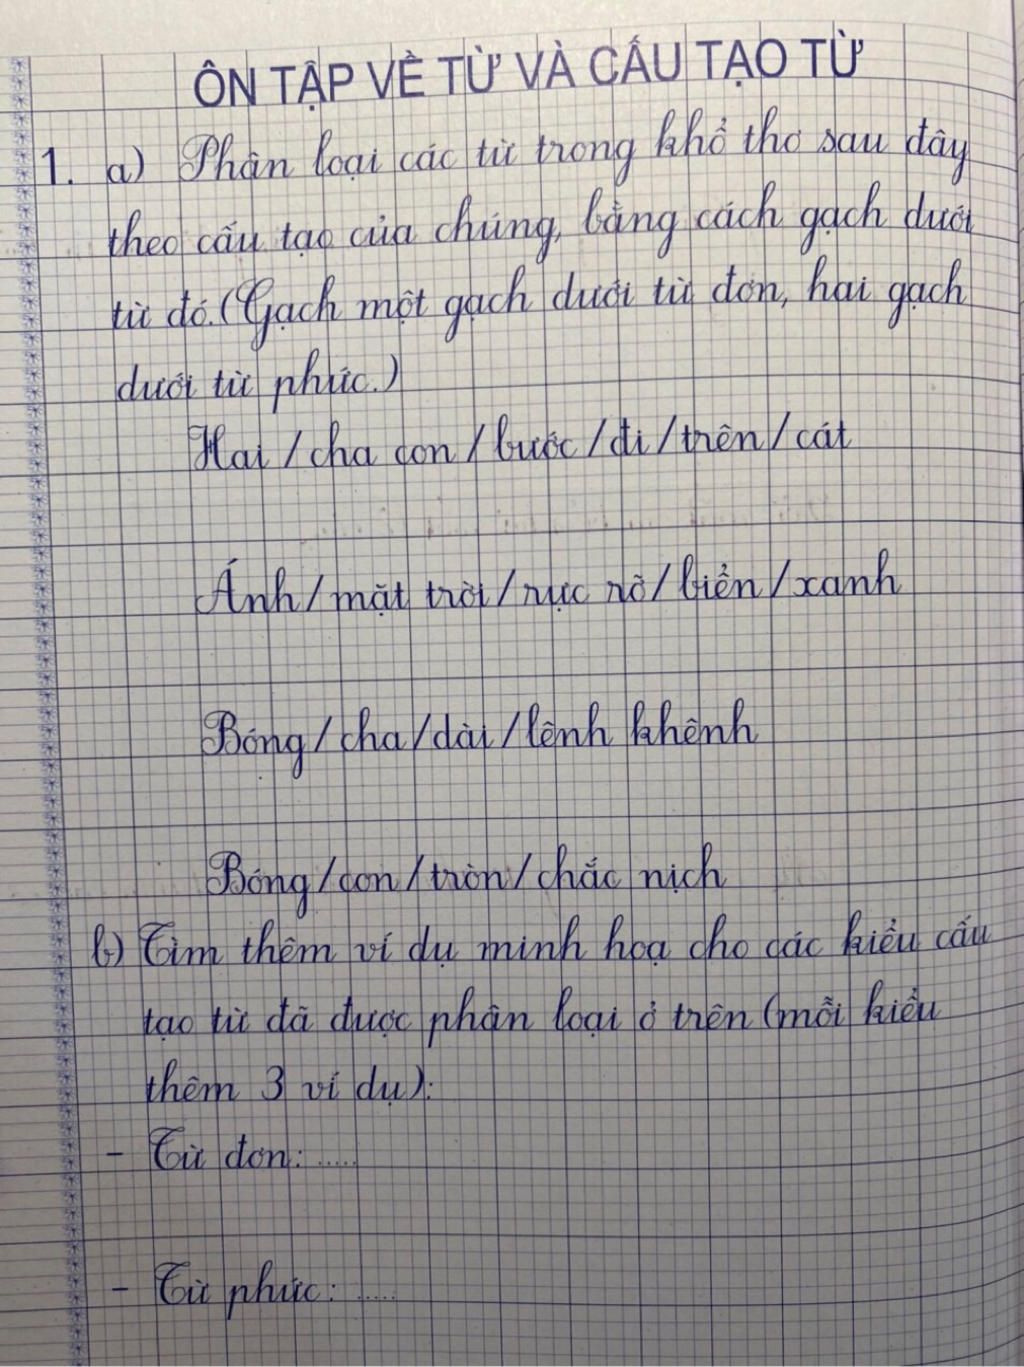 ÔN TẬP VỀ TỪ VÀ CẤU TẠO TỪ
1. a) Phân loại các từ trong khổ thơ sau đây
theo cấu tạo của chúng, bằng cách gạch dưới
từ đó. (Gạch một gạch dưới từ đơn, hai gạch
dưới từ phức.)
Hai / cha con / bước / đi / trên / cát
Ánh / mặt trời / rực rỡ / biển / xanh
Bóng / cha / dài / lênh khênh
Bóng / con / tròn / chắc nịch
b) Tìm thêm ví dụ minh hoạ cho các kiểu cấu
tạo từ đã được phân loại ở trên (mỗi kiểu
thêm 3 ví dụ):
- Từ đơn: .....
- Từ phức: .....